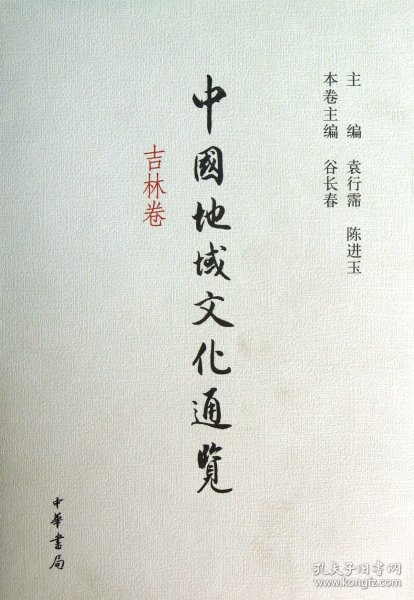 主 编 袁行霈 陈进玉
本卷主编 谷长春
中國地域文化通覽
吉林卷
中華書局
孔夫子旧书网
www.kongfz.com